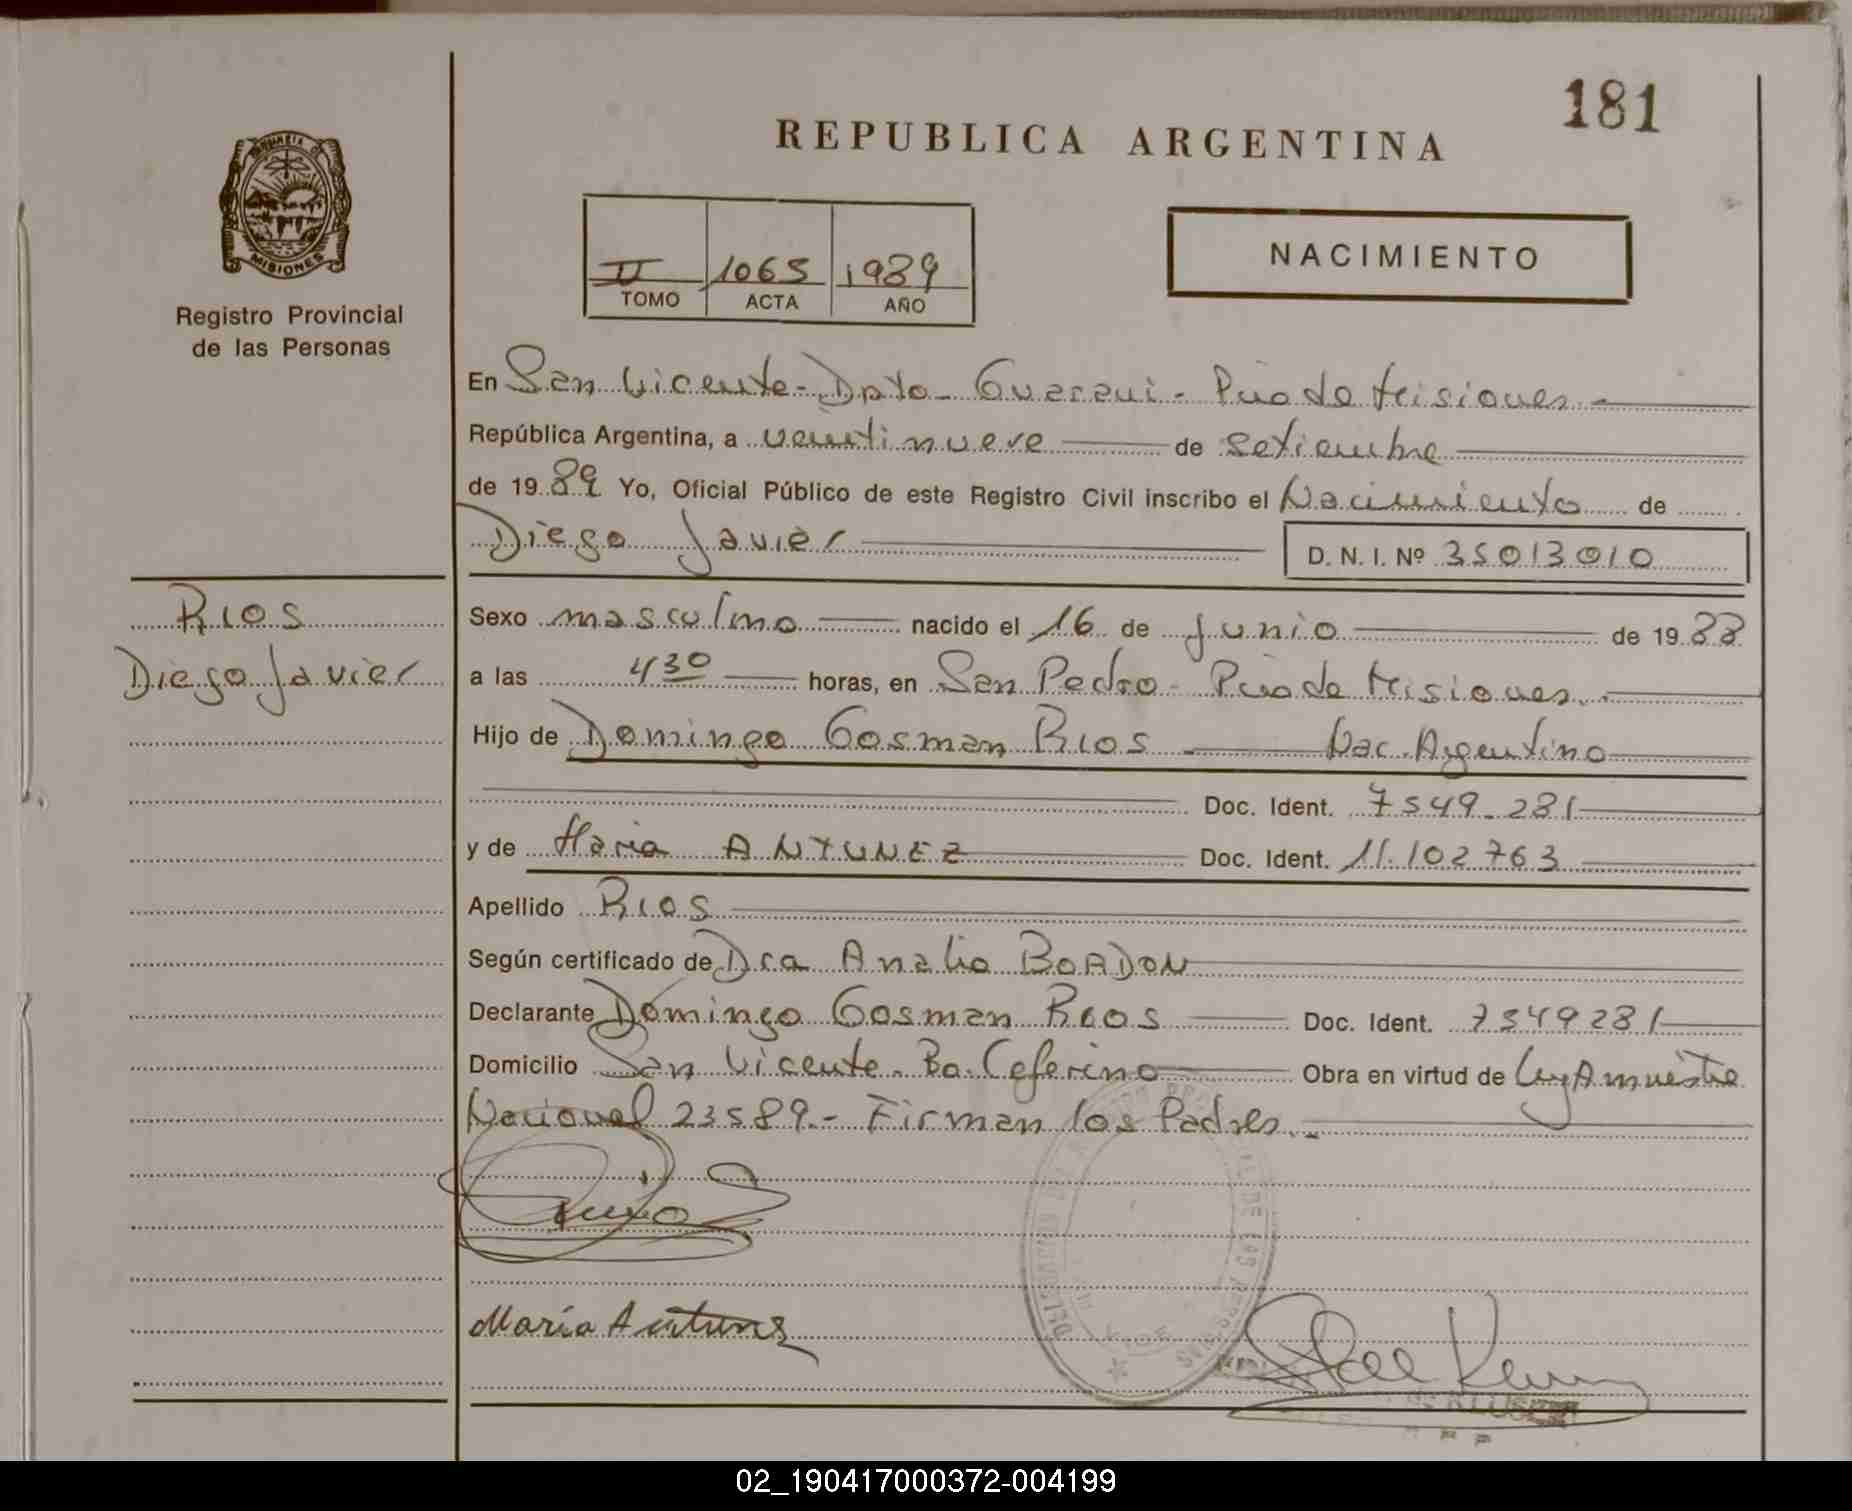 181
REPUBLICA ARGENTINA
II 1065 1989
TOMO ACTA AÑO
NACIMIENTO
MISIONES
Registro Provincial
de las Personas
En San Vicente - Dpto - Guaraní - Pcia de Misiones -
República Argentina, a veintinueve de setiembre
de 1989 Yo, Oficial Público de este Registro Civil inscribo el Nacimiento de
Diego Javier D. N. I. Nº 35013010
RIOS
Diego Javier
Sexo masculino nacido el 16 de Junio de 1988
a las 4 30 horas, en San Pedro - Pcia de Misiones.
Hijo de Domingo Gosman RIOS Nac. Argentino
Doc. Ident. 7549.281
y de Maria ANTUNEZ Doc. Ident. 11.102763
Apellido RIOS
Según certificado de Dra Analia BOADON
Declarante Domingo Gosman RIOS Doc. Ident. 7549281
Domicilio San Vicente. Bo. Ceferino Obra en virtud de Ley Amnistia
Nacional 23589.- Firman los Padres.-
María Antunez
02_190417000372-004199